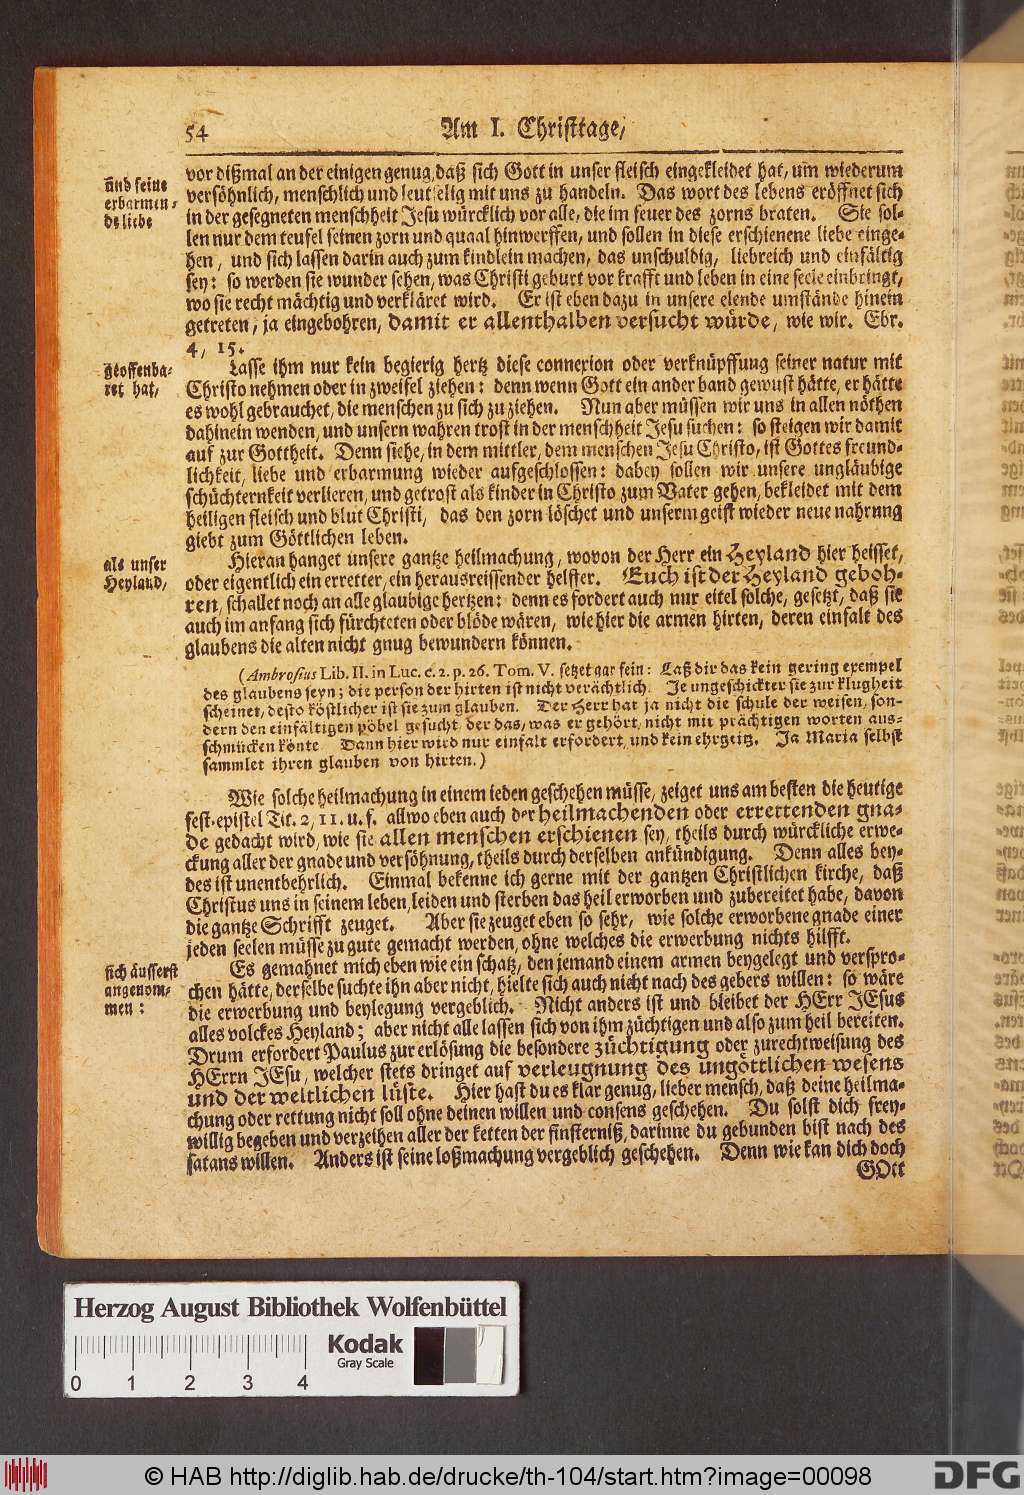 54
Am I. Christtage,
und seine
erbarmen-
de liebe
vor dißmal an der einigen genug, daß sich Gott in unser fleisch eingekleidet hat, um wiederum
versöhnlich, menschlich und leutselig mit uns zu handeln. Das wort des lebens eröffnet sich
in der gesegneten menschheit Jesu würcklich vor alle, die im feuer des zorns braten. Sie sol-
len nur dem teufel seinen zorn und quaal hinwerffen, und sollen in diese erschienene liebe einge-
hen, und sich lassen darin auch zum kindlein machen, das unschuldig, liebreich und einfältig
sey: so werden sie wunder sehen, was Christi geburt vor krafft und leben in eine seele einbringt,
wo sie recht mächtig und verkläret wird. Er ist eben dazu in unsere elende umstände hinein
getreten, ja eingebohren, damit er allenthalben versucht würde, wie wir. Ebr.
4, 15.
geoffenba-
ret hat,
Lasse ihm nur kein begierig hertz diese connexion oder verknüpffung seiner natur mit
Christo nehmen oder in zweifel ziehen: denn wenn Gott ein ander band gewust hätte, er hätte
es wohl gebrauchet, die menschen zu sich zu ziehen. Nun aber müssen wir uns in allen nöthen
dahinein wenden, und unsern wahren trost in der menschheit Jesu suchen: so steigen wir damit
auf zur Gottheit. Denn siehe, in dem mittler, dem menschen Jesu Christo, ist Gottes freund-
lichkeit, liebe und erbarmung wieder aufgeschlossen: dabey sollen wir unsere ungläubige
schüchternkeit verlieren, und getrost als kinder in Christo zum Vater gehen, bekleidet mit dem
heiligen fleisch und blut Christi, das den zorn löschet und unserm geist wieder neue nahrung
giebt zum Göttlichen leben.
als unser
Heyland,
Hieran hanget unsere gantze heilmachung, wovon der Herr ein Heyland hier heisset,
oder eigentlich ein erretter, ein herausreissender helffer. Euch ist der Heyland geboh-
ren, schallet noch an alle glaubige hertzen: denn es fordert auch nur eitel solche, gesetzt, daß sie
auch im anfang sich fürchteten oder blöde wären, wie hier die armen hirten, deren einfalt des
glaubens die alten nicht gnug bewundern können.
(Ambrosius Lib. II. in Luc. c. 2. p. 26. Tom. V. setzet gar fein: Laß dir das kein gering exempel
des glaubens seyn; die person der hirten ist nicht verächtlich. Je ungeschickter sie zur klugheit
scheinet, desto köstlicher ist sie zum glauben. Der Herr hat ja nicht die schule der weisen, son-
dern den einfältigen pöbel gesucht, der das, was er gehört, nicht mit prächtigen worten aus-
schmücken könte. Dann hier wird nur einfalt erfordert, und kein ehrgeitz. Ja Maria selbst
sammlet ihren glauben von hirten.)
Wie solche heilmachung in einem ieden geschehen müsse, zeiget uns am besten die heutige
fest-epistel Tit. 2, 11. u. f. allwo eben auch der heilmachenden oder errettenden gna-
de gedacht wird, wie sie allen menschen erschienen sey, theils durch würckliche erwe-
ckung aller der gnade und versöhnung, theils durch derselben ankündigung. Denn alles bey-
des ist unentbehrlich. Einmal bekenne ich gerne mit der gantzen Christlichen kirche, daß
Christus uns in seinem leben, leiden und sterben das heil erworben und zubereitet habe, davon
die gantze Schrifft zeuget. Aber sie zeuget eben so sehr, wie solche erworbene gnade einer
jeden seelen müsse zu gute gemacht werden, ohne welches die erwerbung nichts hilfft.
sich äusserst
angenom-
men:
Es gemahnet mich eben wie ein schatz, den jemand einem armen beygelegt und verspro-
chen hätte, derselbe suchte ihn aber nicht, hielte sich auch nicht nach des gebers willen: so wäre
die erwerbung und beylegung vergeblich. Nicht anders ist und bleibet der HErr JEsus
alles volckes Heyland; aber nicht alle lassen sich von ihm züchtigen und also zum heil bereiten.
Drum erfordert Paulus zur erlösung die besondere züchtigung oder zurechtweisung des
HErrn JEsu, welcher stets dringet auf verleugnung des ungöttlichen wesens
und der weltlichen lüste. Hier hast du es klar genug, lieber mensch, daß deine heilma-
chung oder rettung nicht soll ohne deinen willen und consens geschehen. Du solst dich frey-
willig begeben und verzeihen aller der ketten der finsterniß, darinne du gebunden bist nach des
satans willen. Anders ist seine loßmachung vergeblich geschehen. Denn wie kan dich doch
GOtt
Herzog August Bibliothek Wolfenbüttel
Kodak
Gray Scale
0 1 2 3 4
© HAB http://diglib.hab.de/drucke/th-104/start.htm?image=00098
DFG